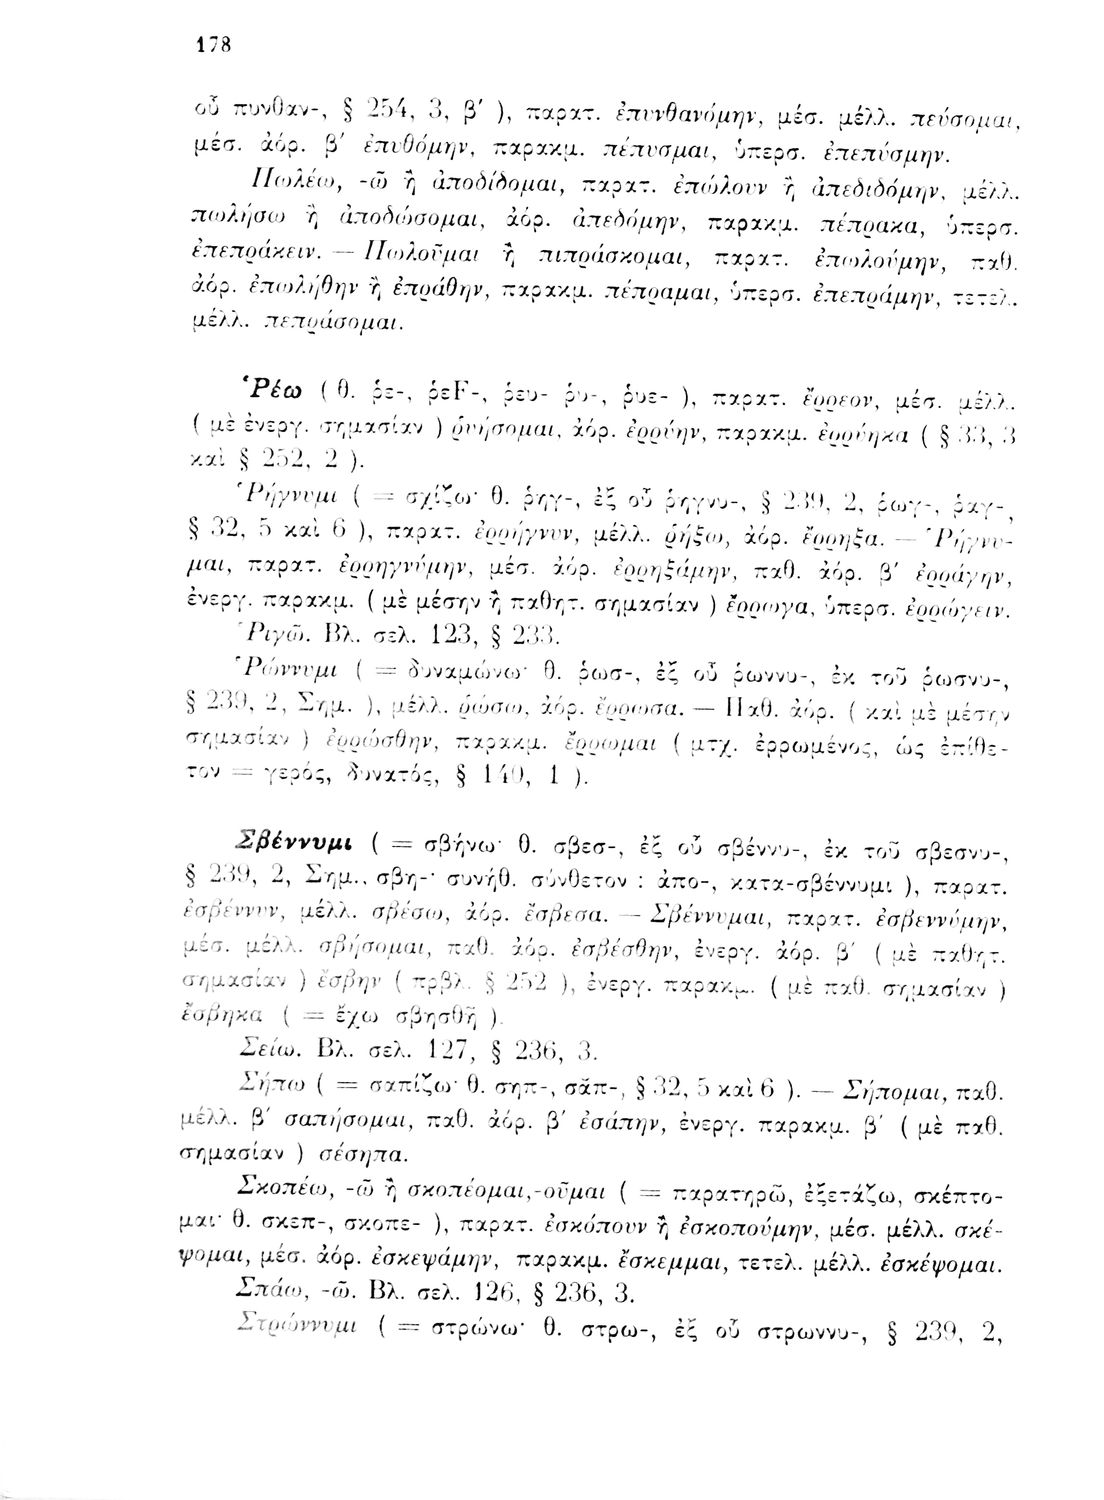 178
οὗ πυνθαν-, § 254, 3, β΄ ), παρατ. ἐπυνθανόμην, μέσ. μέλλ. πεύσομαι,
μέσ. ἀόρ. β΄ ἐπυθόμην, παρακμ. πέπυσμαι, ὑπερσ. ἐπεπύσμην.
Πωλέω, -ῶ ἢ ἀποδίδομαι, παρατ. ἐπώλουν ἢ ἀπεδιδόμην, μέλλ.
πωλήσω ἢ ἀποδώσομαι, ἀόρ. ἀπεδόμην, παρακμ. πέπρακα, ὑπερσ.
ἐπεπράκειν. — Πωλοῦμαι ἢ πιπράσκομαι, παρατ. ἐπωλούμην, παθ.
ἀόρ. ἐπωλήθην ἢ ἐπράθην, παρακμ. πέπραμαι, ὑπερσ. ἐπεπράμην, τετελ.
μέλλ. πεπράσομαι.
Ῥέω ( θ. ῥε-, ῥεF-, ῥευ- ῥυ-, ῥυε- ), παρατ. ἔρρεον, μέσ. μέλλ.
( μὲ ἐνεργ. σημασίαν ) ῥυήσομαι, ἀόρ. ἐρρύην, παρακμ. ἐρρύηκα ( § 33, 3
καὶ § 252, 2 ).
Ῥήγνυμι ( = σχίζω· θ. ῥηγ-, ἐξ οὗ ῥηγνυ-, § 239, 2, ῥωγ-, ῥαγ-,
§ 32, 5 καὶ 6 ), παρατ. ἐρρήγνυν, μέλλ. ῥήξω, ἀόρ. ἔρρηξα. — Ῥήγνυ-
μαι, παρατ. ἐρρηγνύμην, μέσ. ἀόρ. ἐρρηξάμην, παθ. ἀόρ. β΄ ἐρράγην,
ἐνεργ. παρακμ. ( μὲ μέσην ἢ παθητ. σημασίαν ) ἔρρωγα, ὑπερσ. ἐρρώγειν.
Ῥιγῶ. Βλ. σελ. 123, § 233.
Ῥώννυμι ( = δυναμώνω· θ. ῥωσ-, ἐξ οὗ ῥωννυ-, ἐκ τοῦ ῥωσνυ-,
§ 239, 2, Σημ. ), μέλλ. ῥώσω, ἀόρ. ἔρρωσα. — Παθ. ἀόρ. ( καὶ μὲ μέσην
σημασίαν ) ἐρρώσθην, παρακμ. ἔρρωμαι ( μτχ. ἐρρωμένος, ὡς ἐπίθε-
τον = γερός, δυνατός, § 140, 1 ).
Σβέννυμι ( = σβήνω· θ. σβεσ-, ἐξ οὗ σβέννυ-, ἐκ τοῦ σβεσνυ-,
§ 239, 2, Σημ., σβη-· συνήθ. σύνθετον : ἀπο-, κατα-σβέννυμι ), παρατ.
ἐσβέννυν, μέλλ. σβέσω, ἀόρ. ἔσβεσα. — Σβέννυμαι, παρατ. ἐσβεννύμην,
μέσ. μέλλ. σβήσομαι, παθ. ἀόρ. ἐσβέσθην, ἐνεργ. ἀόρ. β΄ ( μὲ παθητ.
σημασίαν ) ἔσβην ( πρβλ. § 252 ), ἐνεργ. παρακμ. ( μὲ παθ. σημασίαν )
ἔσβηκα ( = ἔχω σβησθῆ ).
Σείω. Βλ. σελ. 127, § 236, 3.
Σήπω ( = σαπίζω· θ. σηπ-, σᾰπ-, § 32, 5 καὶ 6 ). — Σήπομαι, παθ.
μέλλ. β΄ σαπήσομαι, παθ. ἀόρ. β΄ ἐσάπην, ἐνεργ. παρακμ. β΄ ( μὲ παθ.
σημασίαν ) σέσηπα.
Σκοπέω, -ῶ ἢ σκοπέομαι,-οῦμαι ( = παρατηρῶ, ἐξετάζω, σκέπτο-
μαι· θ. σκεπ-, σκοπε- ), παρατ. ἐσκόπουν ἢ ἐσκοπούμην, μέσ. μέλλ. σκέ-
ψομαι, μέσ. ἀόρ. ἐσκεψάμην, παρακμ. ἔσκεμμαι, τετελ. μέλλ. ἐσκέψομαι.
Σπάω, -ῶ. Βλ. σελ. 126, § 236, 3.
Στρώννυμι ( = στρώνω· θ. στρω-, ἐξ οὗ στρωννυ-, § 239, 2,